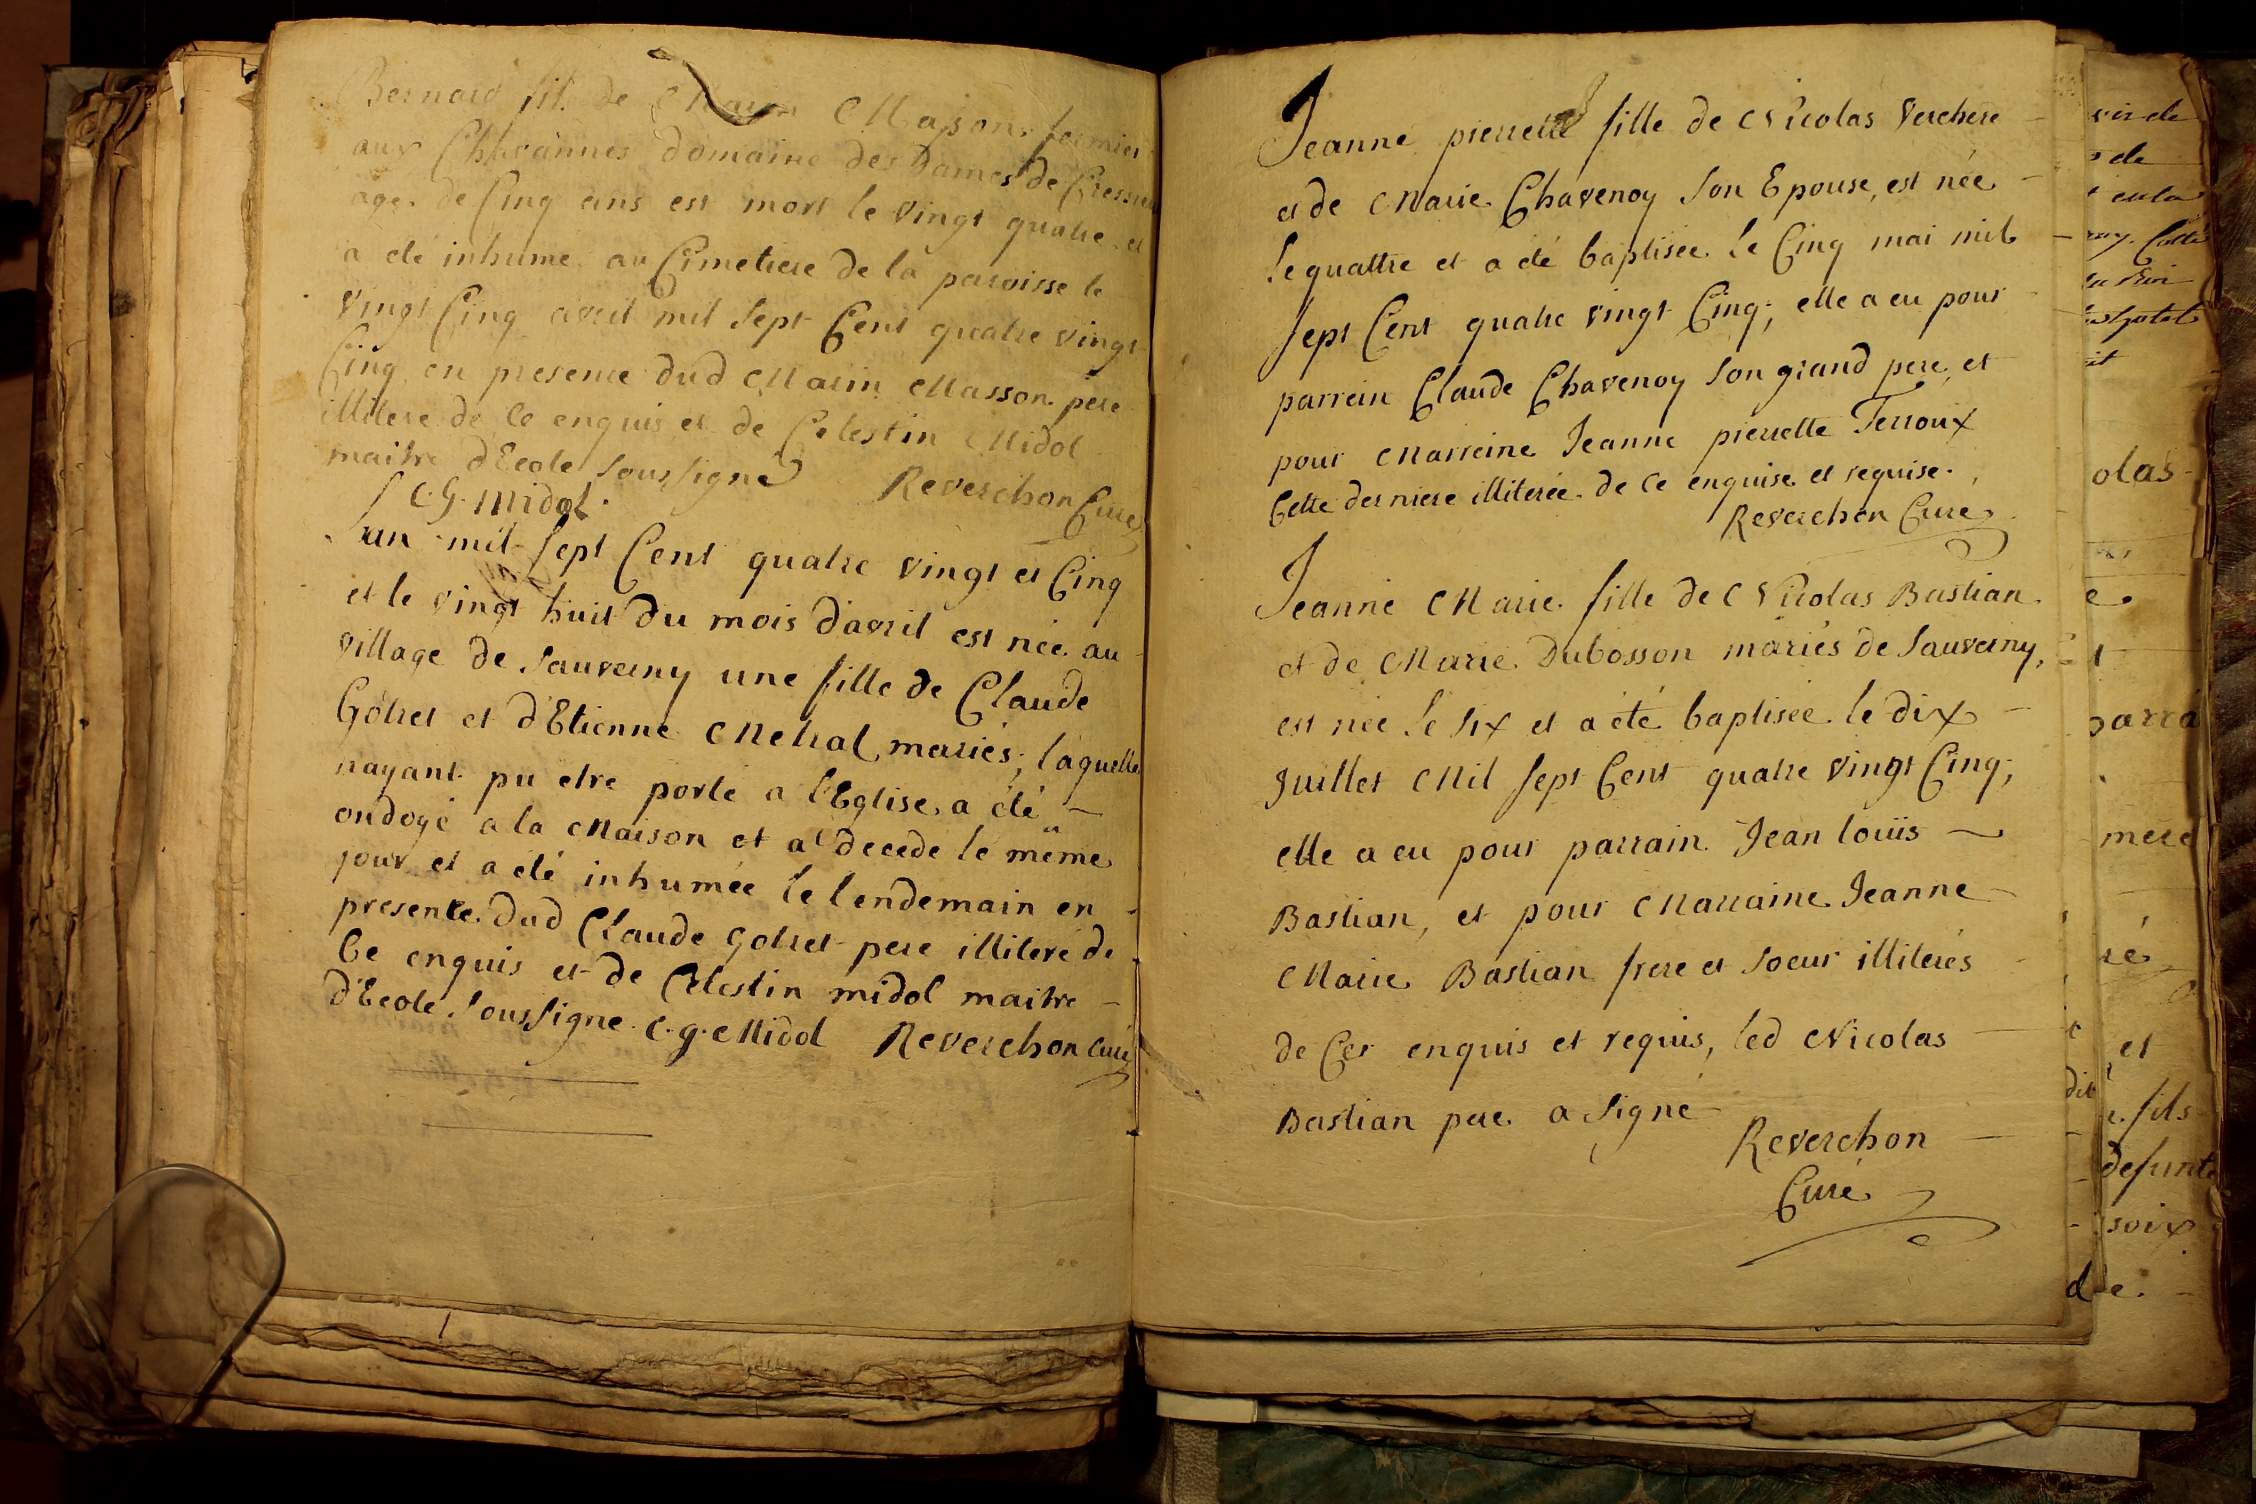 Bernard fils de Marin Masson fermier
aux Chavannes domaine des Dames de Cressieu
age de Cinq ans est mort le vingt quatre et
a eté inhumé au Cimetiere de la paroisse le
vingt Cinq avril mil sept Cent quatre vingt
Cinq en presence dud Marin Masson pere
illiteré de ce enquis et de Celestin Midol
maitre d'Ecole soussigné
C. G. Midol. Reverchon Curé
Lan mil sept Cent quatre vingt et Cinq
et le vingt huit du mois davril est née au
village de Sauverny une fille de Claude
Gotret et d'Etienne Metral mariés; laquelle
nayant pu etre porte a l'Eglise, a été
ondoyé a la Maison et a decede le même
jour et a eté inhumée le lendemain en
presence dud Claude Gotret pere illiteré de
Ce enquis et de Celestin midol maitre
d'Ecole soussigne. C. g. Midol Reverchon curé
Jeanne pierrette fille de Nicolas Verchere
et de Marie Chavenoy son Epouse, est née
le quattre et a été baptisée le Cinq mai mil
sept Cent quatre vingt Cinq; elle a eu pour
parrein Claude Chavenoy son grand pere, et
pour Marreine Jeanne pierrette Terroux
Cette derniere illiterée de ce enquise et requise.
Reverchon Curé
Jeanne Marie fille de Nicolas Bastian
et de Marie Dubosson mariés de Sauverny,
est née le six et a été baptisée le dix
Juillet Mil sept Cent quatre vingt Cinq;
elle a eu pour parrain Jean louis
Bastian, et pour Marraine Jeanne
Marie Bastian frere et soeur illiterés
de Ces enquis et requis, led Nicolas
Bastian pere a signé
Reverchon
Curé
de
olas
mere
et
fils
defunte